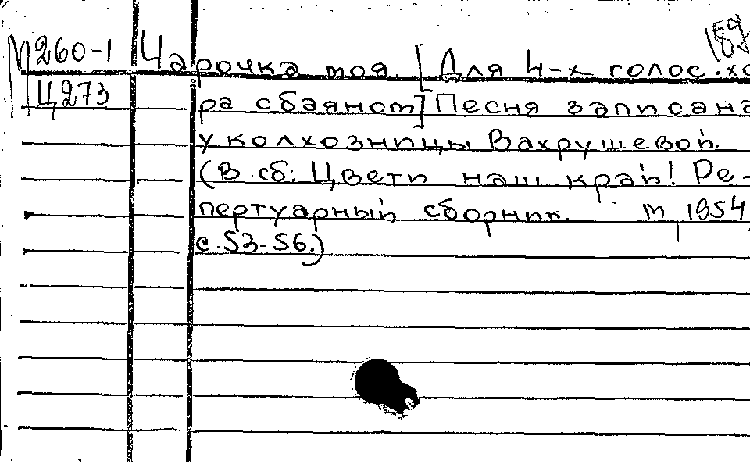 М260-1 Чарочка моя. [Для 4-х голос. хо
Ц273 ра с баяном] Песня записана
у колхозницы Вахрушевой.
(В сб: Цвети наш край! Ре-
пертуарный сборник. М 1954,
с. 53-56.)